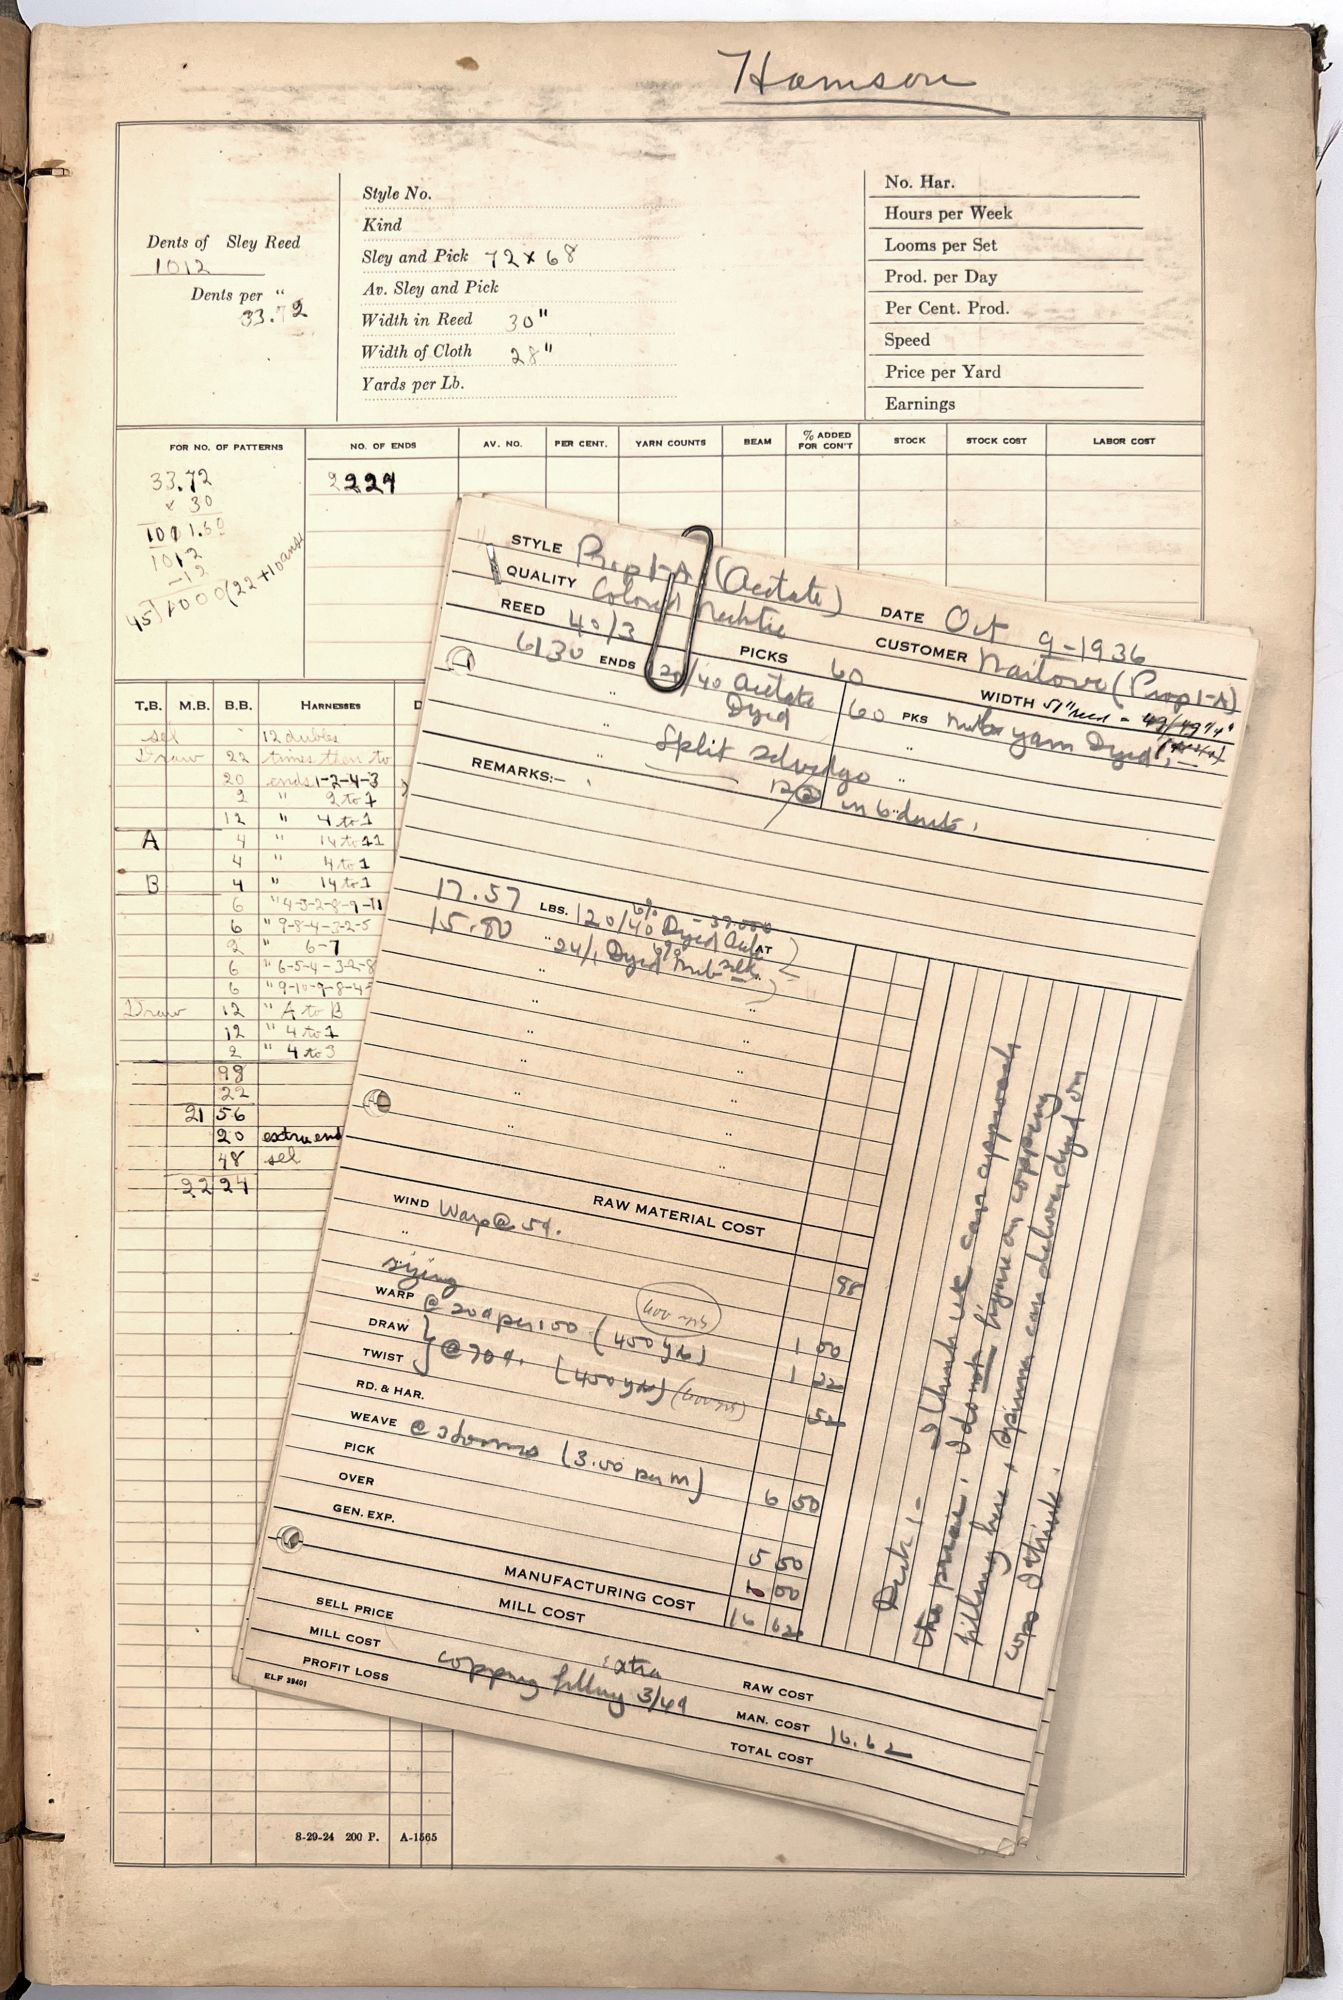 Hamson
Dents of Sley Reed
1012
Dents per "
33.72
Style No.
Kind
Sley and Pick 72 x 68
Av. Sley and Pick
Width in Reed 30"
Width of Cloth 28"
Yards per Lb.
No. Har.
Hours per Week
Looms per Set
Prod. per Day
Per Cent. Prod.
Speed
Price per Yard
Earnings
FOR NO. OF PATTERNS NO. OF ENDS AV. NO. PER CENT. YARN COUNTS BEAM % ADDED FOR CON'T STOCK STOCK COST LABOR COST
33.72
x 30
1011.60
1012
-12
45)1000(22+10 ends
2224
T.B. M.B. B.B. HARNESSES D
sel 12 dubles
Draw 22 times then to
20 ends 1-2-4-3
2 " 2 to 1
12 " 4 to 1
A 4 " 14 to 11
4 " 4 to 1
B 4 " 14 to 1
6 " 4-3-2-8-9-11
6 " 9-8-4-3-2-5
2 " 6-7
6 " 6-5-4-3-2-8
6 " 9-10-9-8-4-5
Draw 12 " A to B
12 " 4 to 1
2 " 4 to 3
98
22
21 56
20 extra end
48 sel
22 24
8-29-24 200 P. A-1565
STYLE Prop 1-A (Acetate) DATE Oct 9-1936
QUALITY Colored Necktie CUSTOMER (Prop 1-A)
REED 40/3 PICKS 60 WIDTH 51" reed - 49/49¼"
6130 ENDS 120/40 Acetate Dyed 60 PKS yarn Dyed
" "
" Split Selvedge "
REMARKS:— 12@ in 6 dents.
17.57 LBS. 120/40 6% Dyed AT
15.80 " 24/1 Dyed 6% silk
"
"
"
"
"
"
"
RAW MATERIAL COST
WIND Warp @ 5¢. 98
"
sizing 1 00
WARP @ 20¢ per 100 (400 yds) 600 yds 1 22
DRAW } @ 70¢. (400 yds) (600 yds) 52
TWIST
RD. & HAR.
WEAVE @ 2 looms (3.00 per M) 6 50
PICK
OVER 5 00
GEN. EXP. 1 00
MANUFACTURING COST 16 62
MILL COST
SELL PRICE RAW COST
MILL COST extra MAN. COST 16.62
PROFIT LOSS copping filling 3/4¢ TOTAL COST
ELF 39401
Dick:- I think we can approach
the price. I do not figure on copping
filling here, Spinner can deliver dyed on
cops I think.